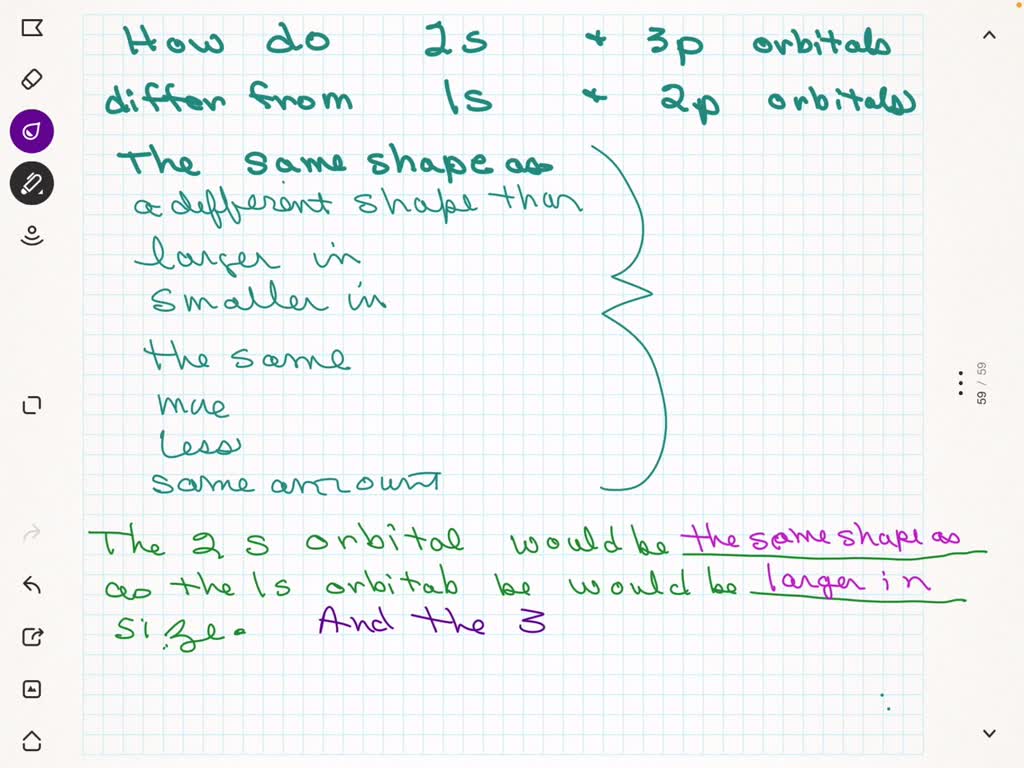 How do 2s + 3p orbitals
differ from 1s + 2p orbitals
The same shape as
a different shape than
larger in
smaller in
the same
more
less
same amount
The 2s orbital would be the same shape as
as the 1s orbitals be would be larger in
size. And the 3
59 / 59